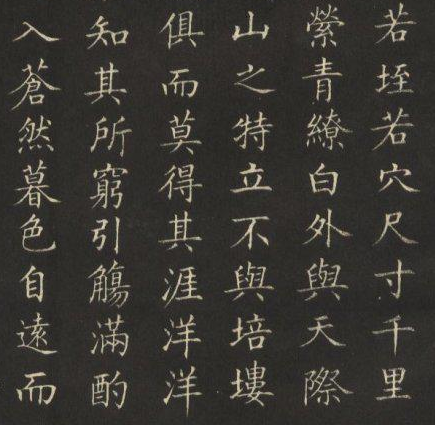 若垤若穴尺寸千里
縈青繚白外與天際
山之特立不與培塿
俱而莫得其涯洋洋
知其所窮引觴滿酌
入蒼然暮色自遠而